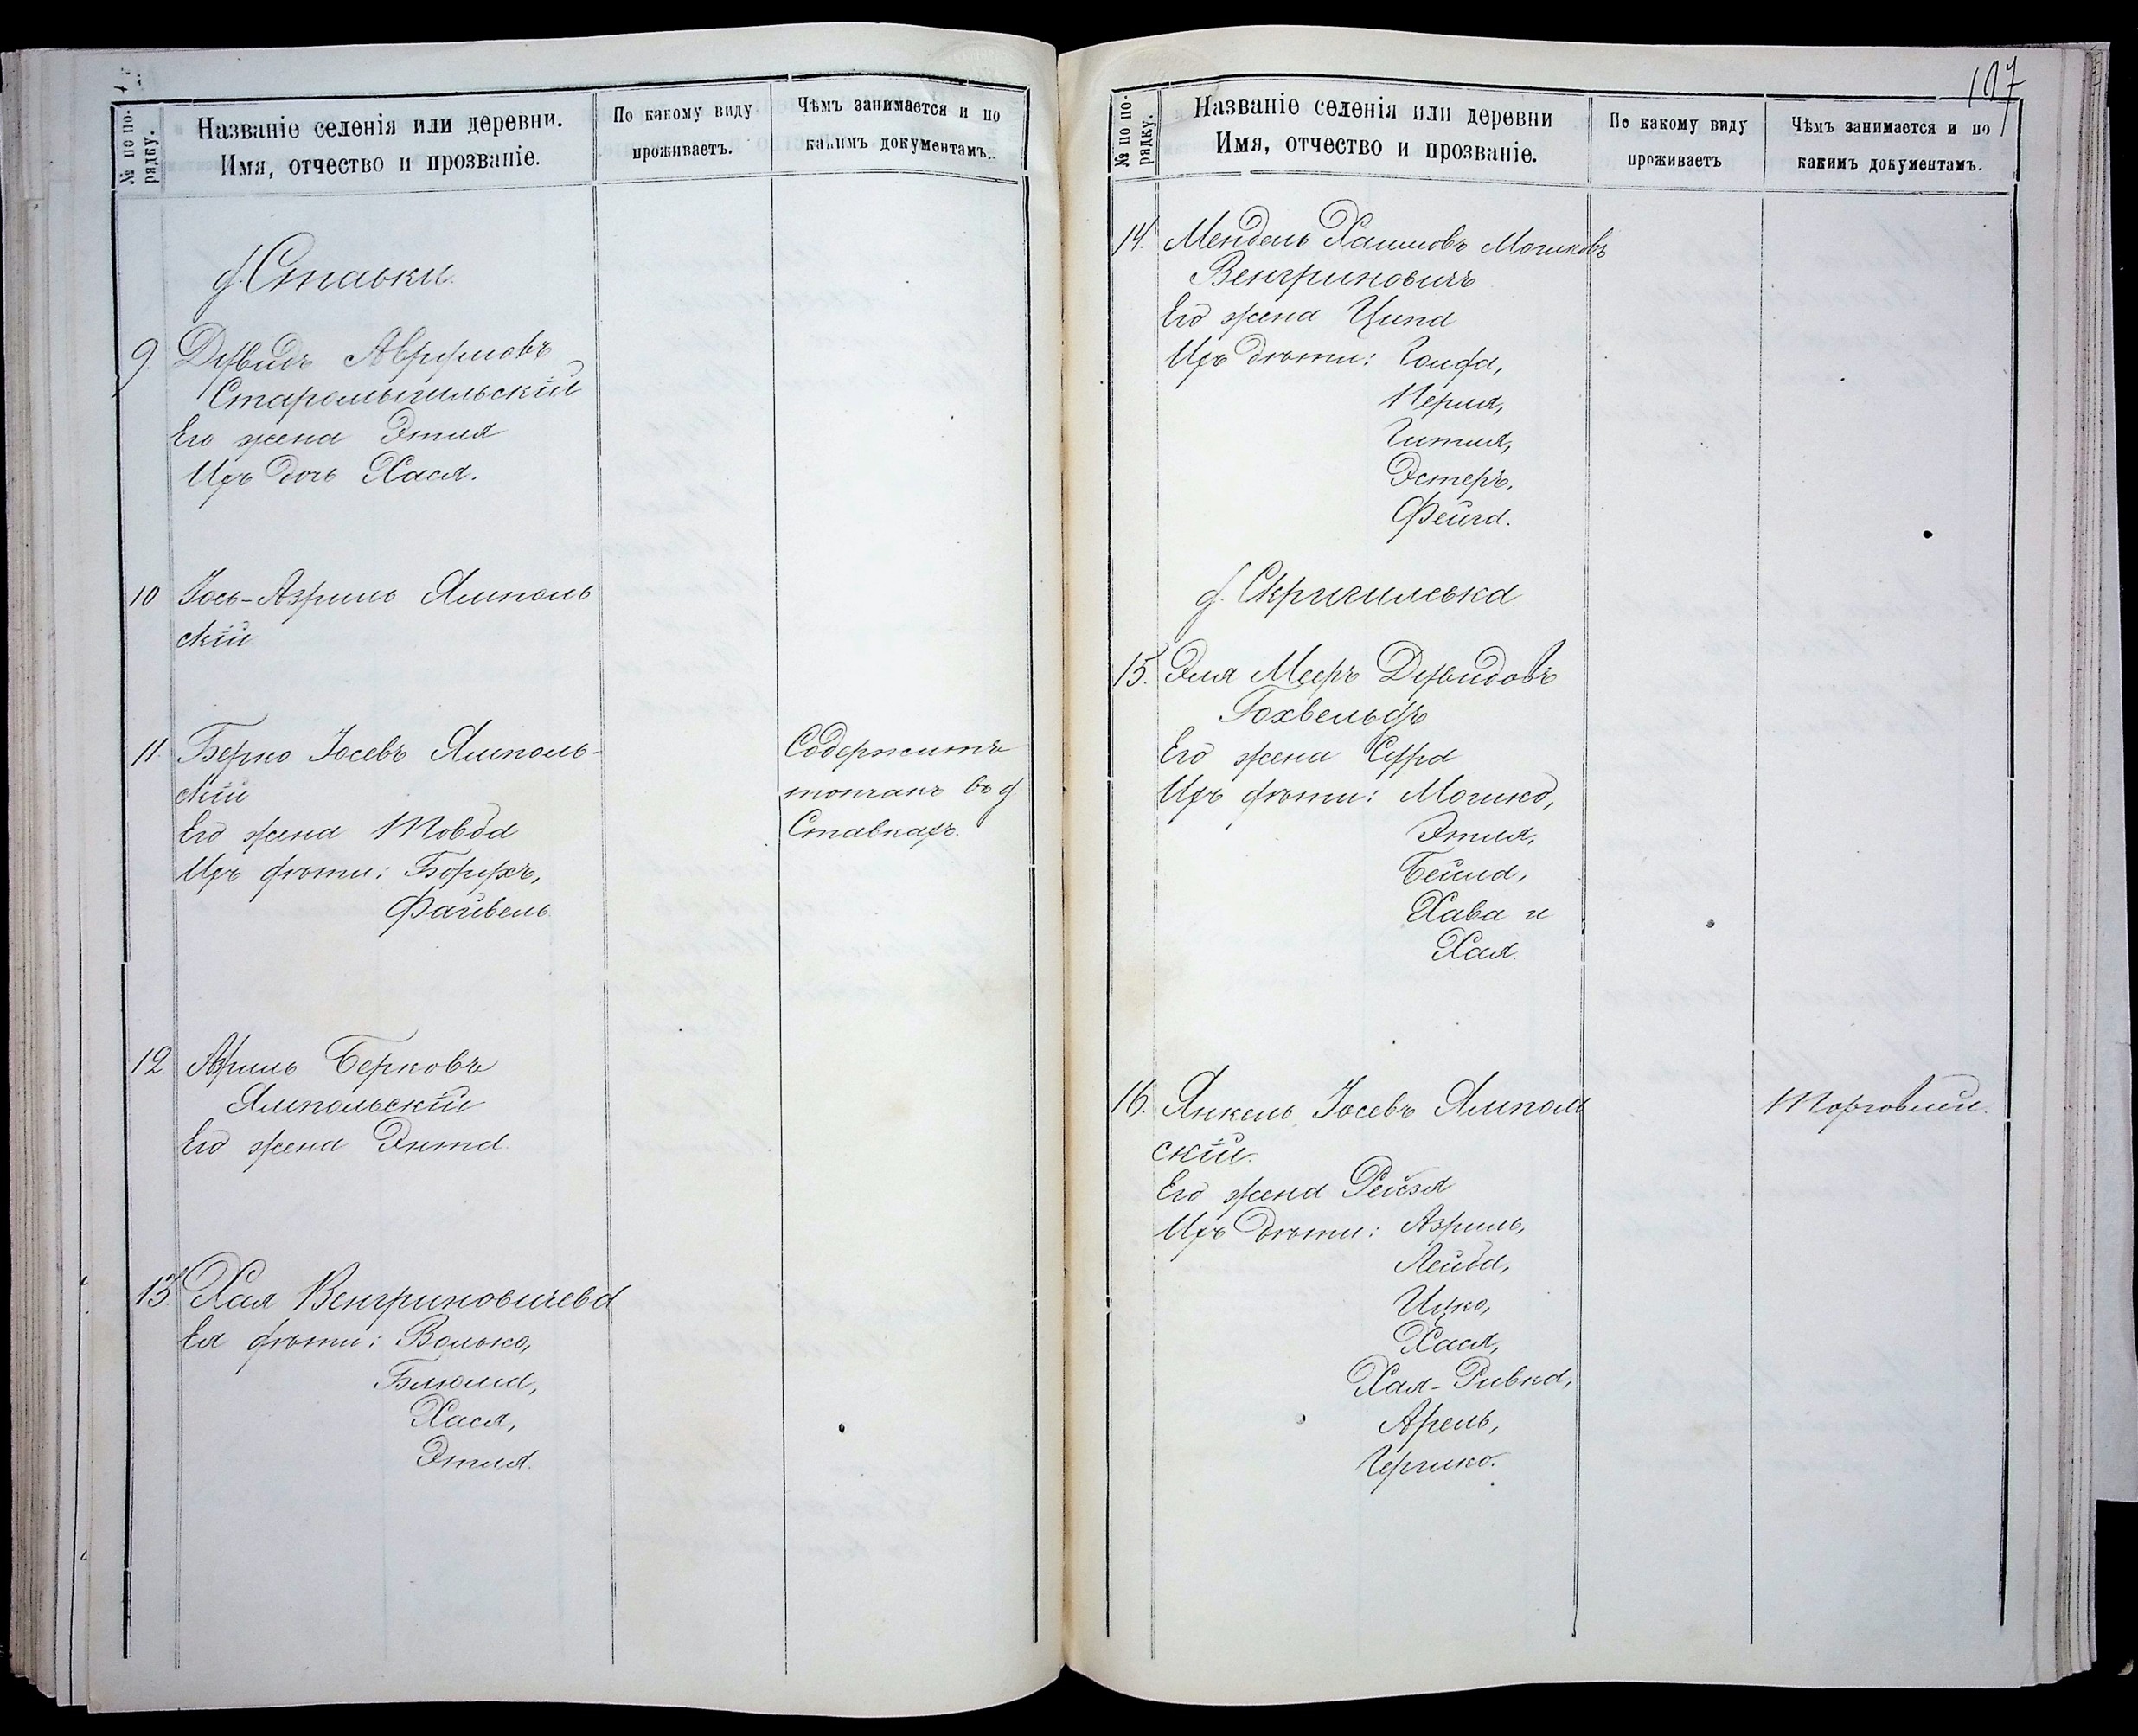 № по по-
рядку.
Названіе селенія или деревни.
Имя, отчество и прозваніе.
По какому виду
проживаетъ.
Чѣмъ занимается и по
какимъ документамъ.
д. Ставки.
9. Дувидъ Аврумовъ
Старомыгильскій
Его жена Этля
Ихъ дочь Хася.
10 Іось-Азриль Ямполь
скій
11. Берко Іосевъ Ямполь-
скій
Его жена Товба
Ихъ дѣти: Борухъ,
Файвель
Содержитъ
топчакъ въ д
Ставкахъ.
12. Азриль Берковъ
Ямпольскій
Его жена Энта
13. Хая Венгриновичева
Ея дѣти: Волько,
Блюма,
Хася,
Этля.
107
№ по по-
рядку.
Названіе селенія или деревни
Имя, отчество и прозваніе.
По какому виду
проживаетъ
Чѣмъ занимается и по
какимъ документамъ.
14. Мендель Хаимовъ Мошковъ
Венгриновичъ
Его жена Ципа
Ихъ дѣти:
Перля,
Гитля,
Эстеръ,
Фейга.
д. Скригилевка
15. Эля Мееръ Дувидовъ
Гохвельдъ
Его жена Сура
Ихъ дѣти: Мошко,
Этля,
Бейла,
Хава и
Хая.
16. Янкель Іосевъ Ямполь
скій.
Его жена Рейзя
Ихъ дѣти: Азриль,
Лейба,
Ицко,
Хася,
Хая-Ривка,
Арель,
Гершко.
Торговлей.